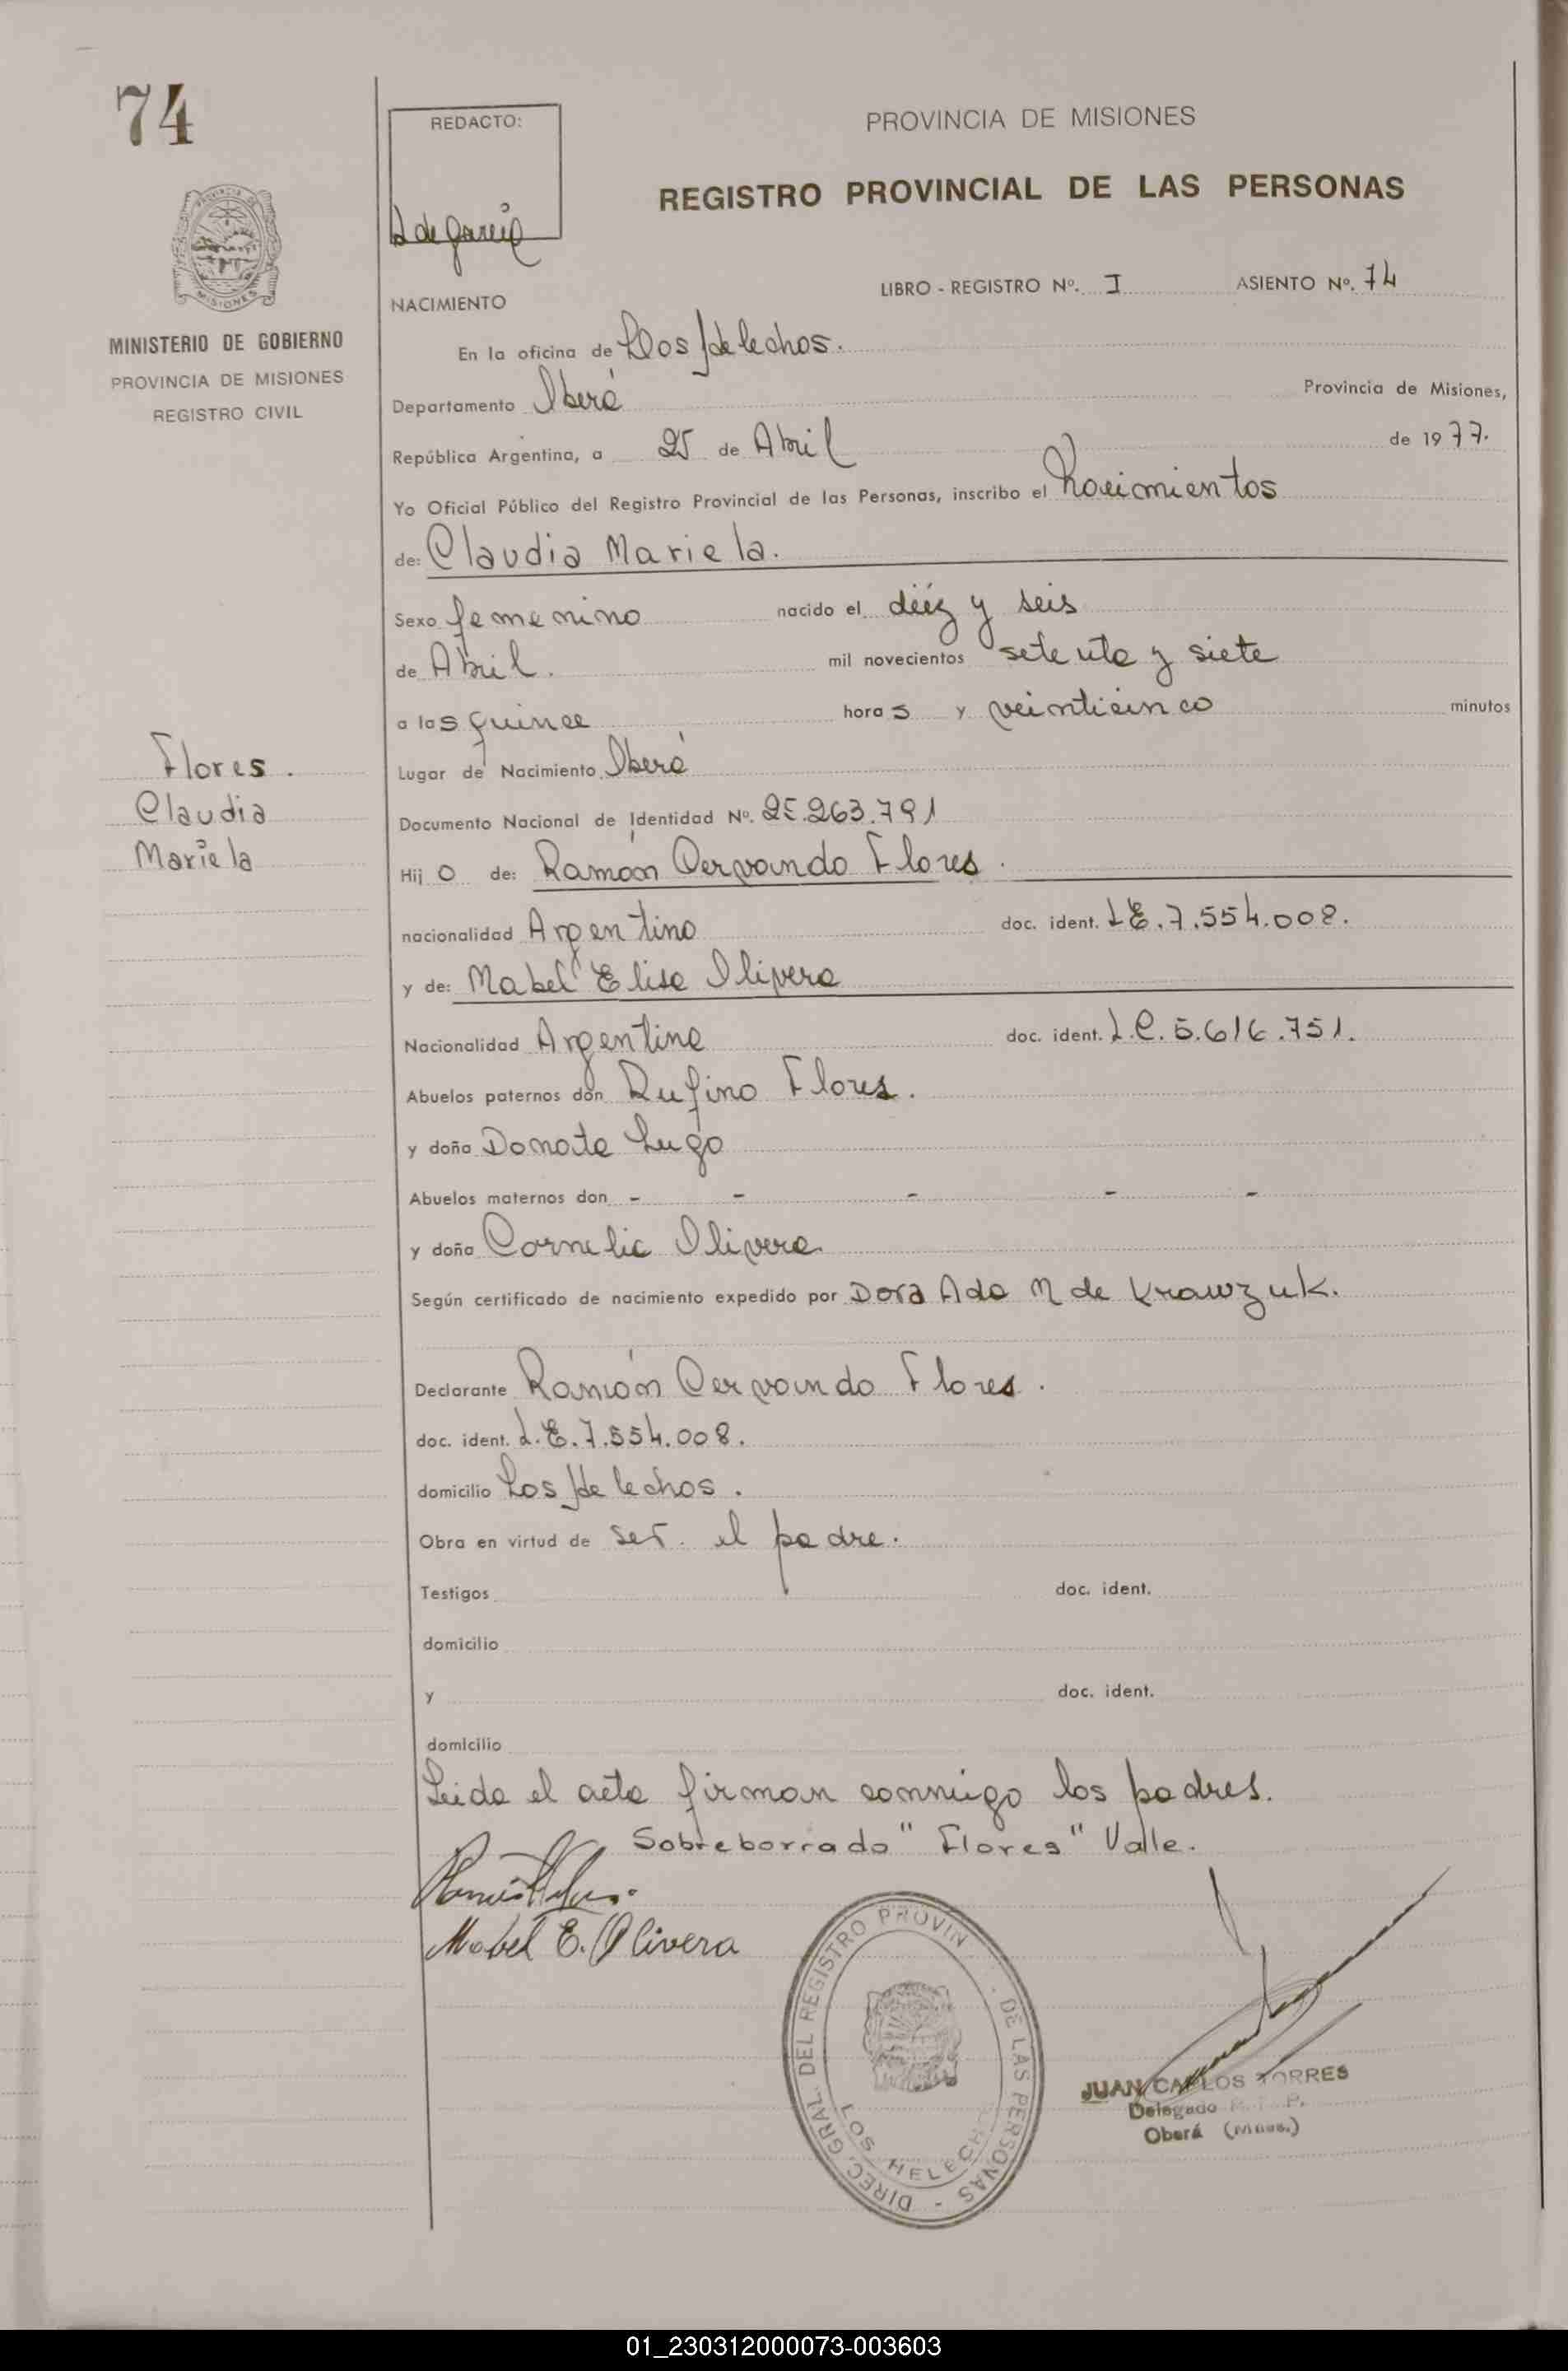 74
REDACTO:
A de Garcia
PROVINCIA DE MISIONES
REGISTRO PROVINCIAL DE LAS PERSONAS
LIBRO - REGISTRO Nº. I ASIENTO Nº. 74
NACIMIENTO
MISIONES
MINISTERIO DE GOBIERNO
PROVINCIA DE MISIONES
REGISTRO CIVIL
En la oficina de Los Helechos.
Departamento Oberá Provincia de Misiones,
República Argentina, a 25 de Abril de 1977.
Yo Oficial Público del Registro Provincial de las Personas, inscribo el Nacimientos
de: Claudia Mariela.
Sexo femenino nacido el diéz y seis
de Abril. mil novecientos setenta y siete
a las quince horas y veinticinco minutos
Flores.
Claudia
Mariela
Lugar de Nacimiento Oberá
Documento Nacional de Identidad Nº. 25.263.791
Hijo de: Ramón Servando Flores.
nacionalidad Argentino doc. ident. L.E.7.554.008.
y de: Mabel Elisa Olivera
Nacionalidad Argentina doc. ident. L.C.5.616.751.
Abuelos paternos don Rufino Flores.
y doña Donata Lugo
Abuelos maternos don - - - - -
y doña Cornelia Olivera
Según certificado de nacimiento expedido por Dora Ada M de Krawzuk.
Declarante Ramón Servando Flores.
doc. ident. L.E.7.554.008.
domicilio Los Helechos.
Obra en virtud de ser el padre.
Testigos doc. ident.
domicilio
y doc. ident.
domicilio
Leida el acta firman conmigo los padres.
Sobreborrado "Flores" Valle.
Mabel E. Olivera
DIREC. GRAL. DEL REGISTRO PROVIN - DE LAS PERSONAS -
LOS HELECHOS
JUAN CARLOS TORRES
Delegado R. P. P.
Oberá (Mnes.)
01_230312000073-003603